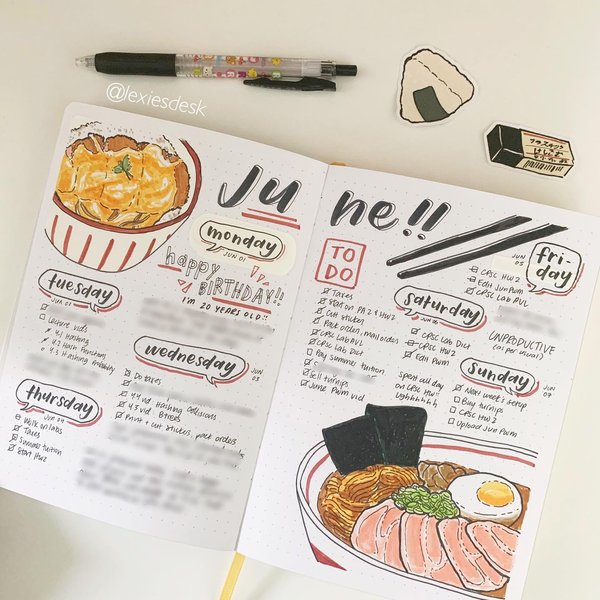 @lexiesdesk
June!!
monday
JUN 01
happy
BIRTHDAY!!
I'M 20 YEARS OLD!!
tuesday
JUN 02
Lecture vids
4.1 Hashing
4.2 Hash Function
4.3 Hashing Probability
wednesday
JUN 03
Do taxes
4.4 vid Hashing Collisions
4.5 vid Btrees
Print + cut stickers, pack orders
thursday
JUN 04
Walk on labs
Taxes
Summer tuition
Start HW2
TO
DO
Taxes
Start on PA 2 & HW2
Cut sticker
Pack order, mail orders
CPSC Lab RVL
CPSC Lab Dict
Pay summer tuition
Sell turnips
June Pwm vid
JUN 05
friday
CPSC HW2
Edit Jun Pwm
CPSC Lab AVL
UNPRODUCTIVE
(as per usual)
saturday
JUN 06
CPSC Lab Dict
CPSC HW2
Edit Pwm
Spent all day
on CPSC HW
sunday
JUN 07
Next week's setup
Buy turnips
CPSC HW2
Upload Jun Pwm